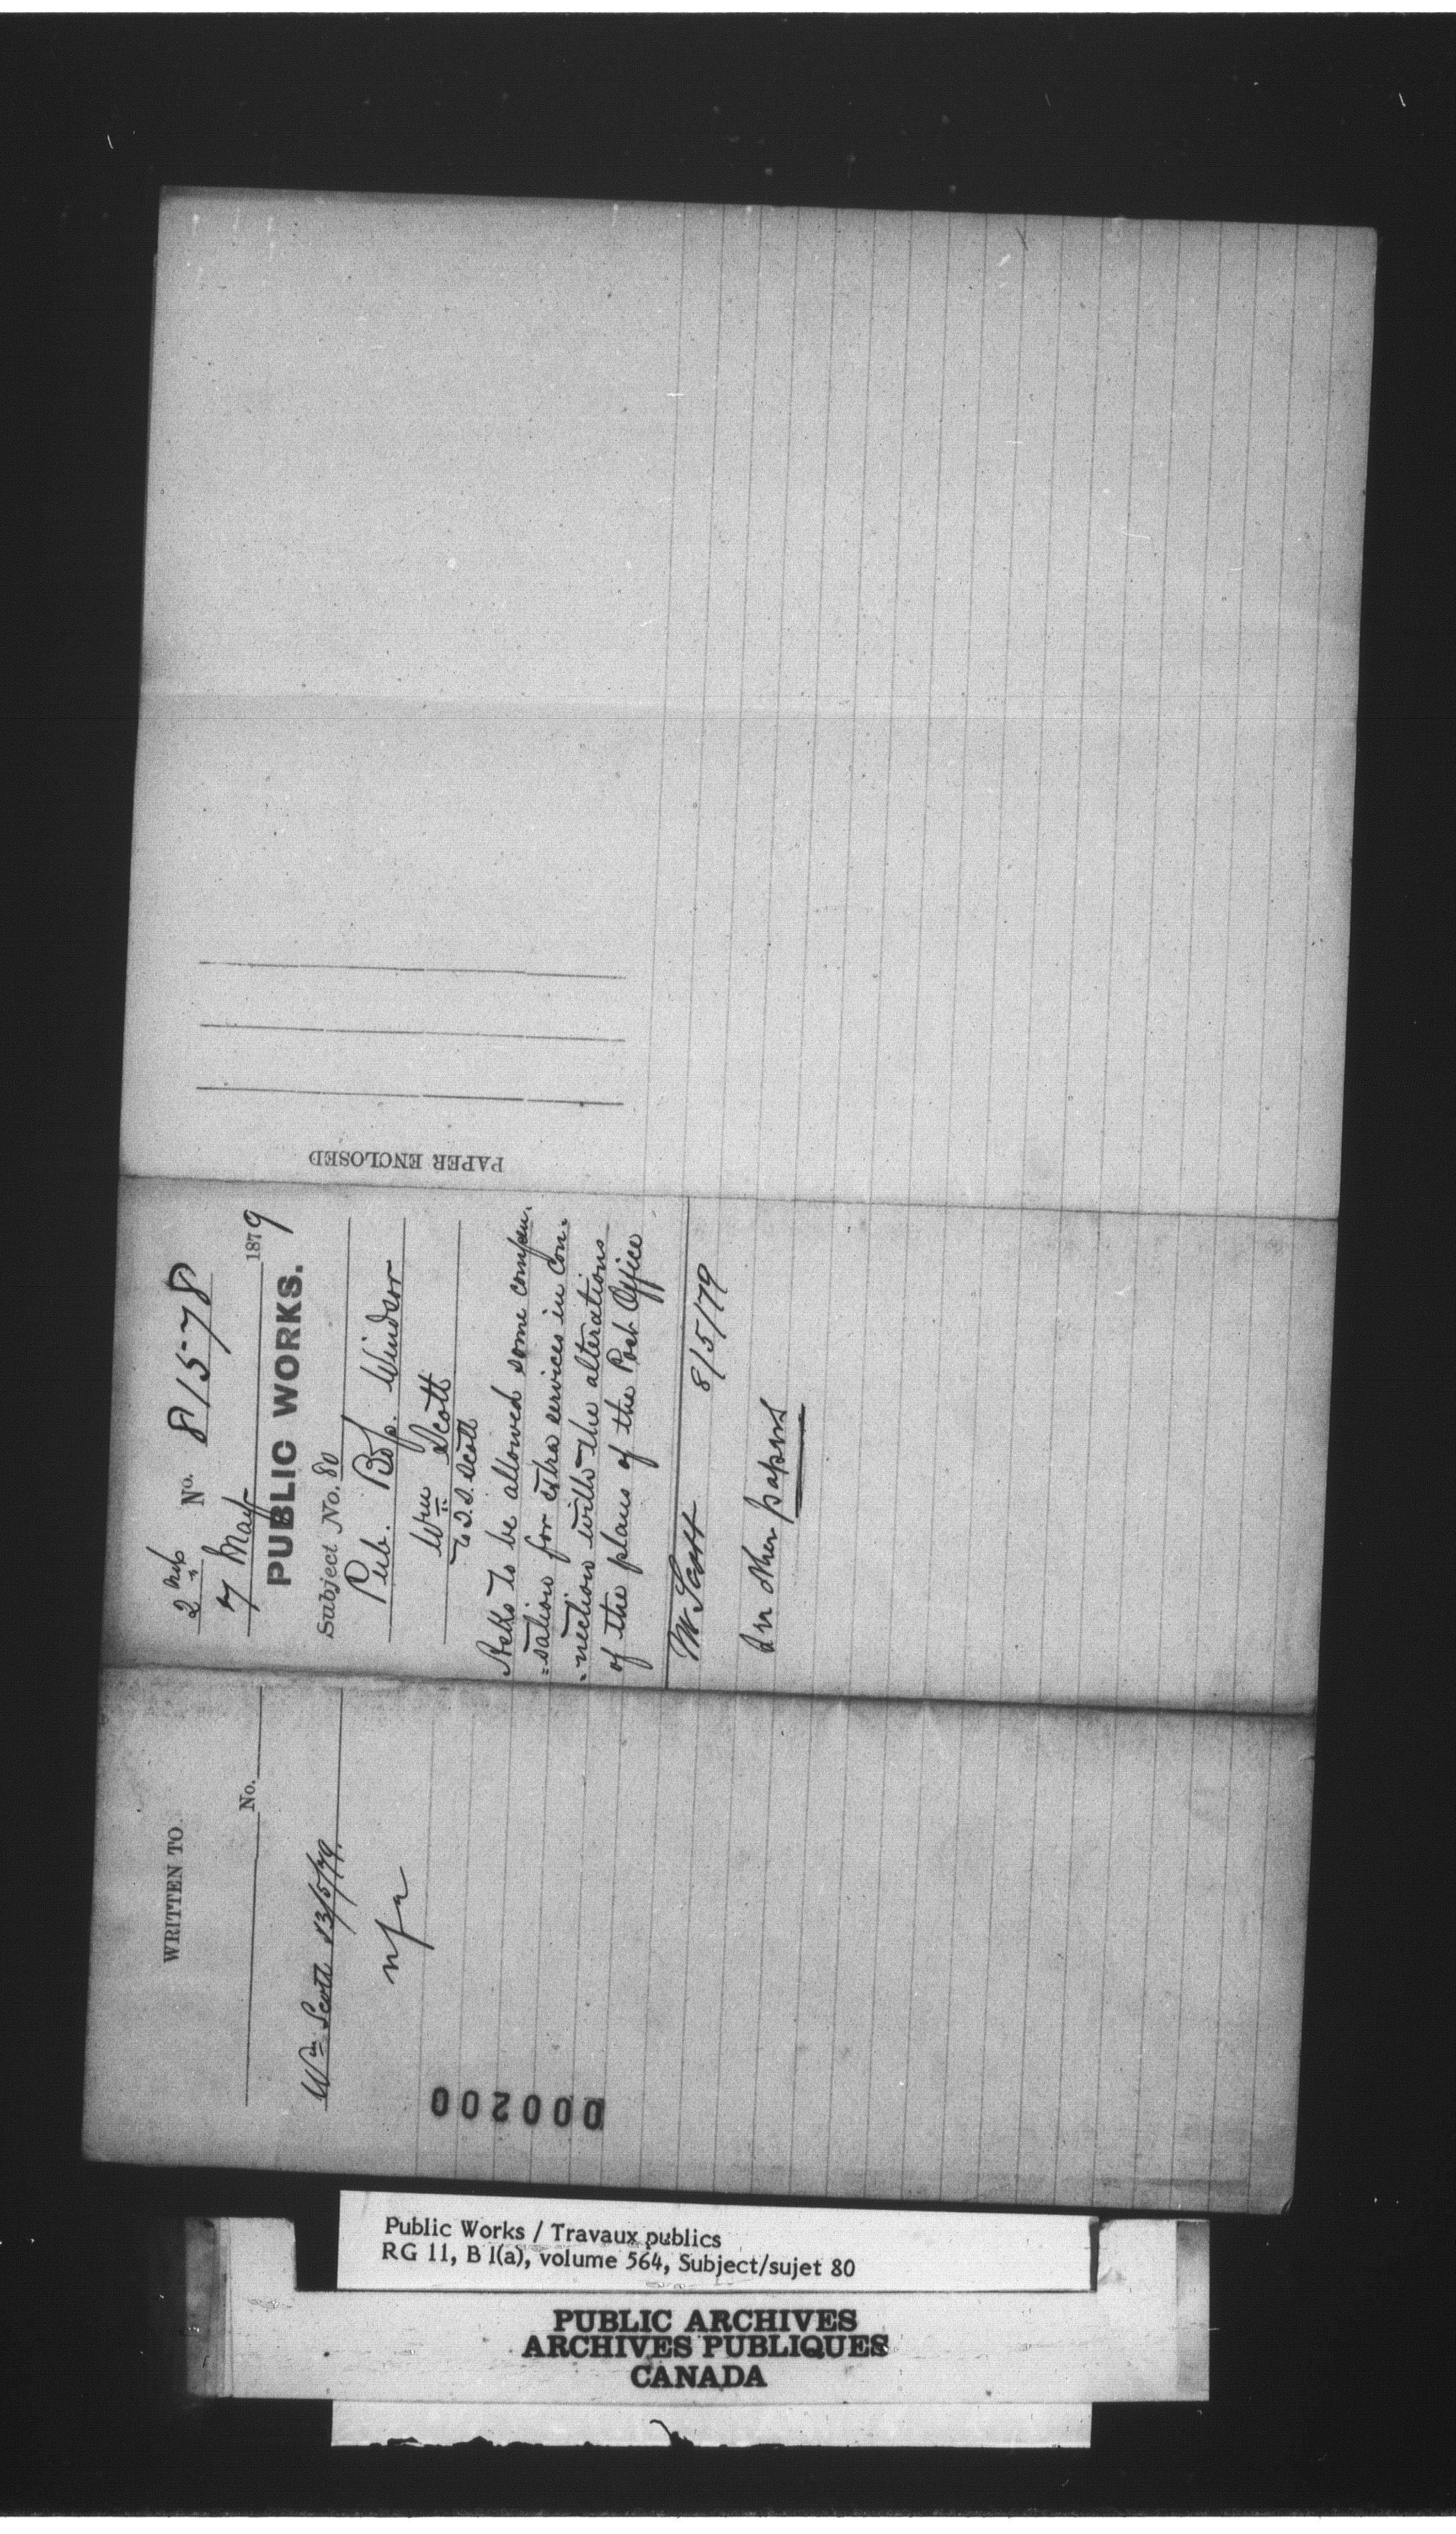 WRITTEN TO.
No.
Wm Scott 13/5/79.
nfa
000200
2 Enls No. 81578
7 May 1879
PUBLIC WORKS.
Subject No. 80
Pub. Bdgs. Windsor
Wm Scott
to T.S. Scott
Asks to be allowed some compen-
=sation for extra services in con-
-nection with the alterations
of the plans of the Post Office
W Scott 8/5/79
In other papers
PAPER ENCLOSED
Public Works / Travaux publics
RG 11, B 1(a), volume 564, Subject/sujet 80
PUBLIC ARCHIVES
ARCHIVES PUBLIQUES
CANADA